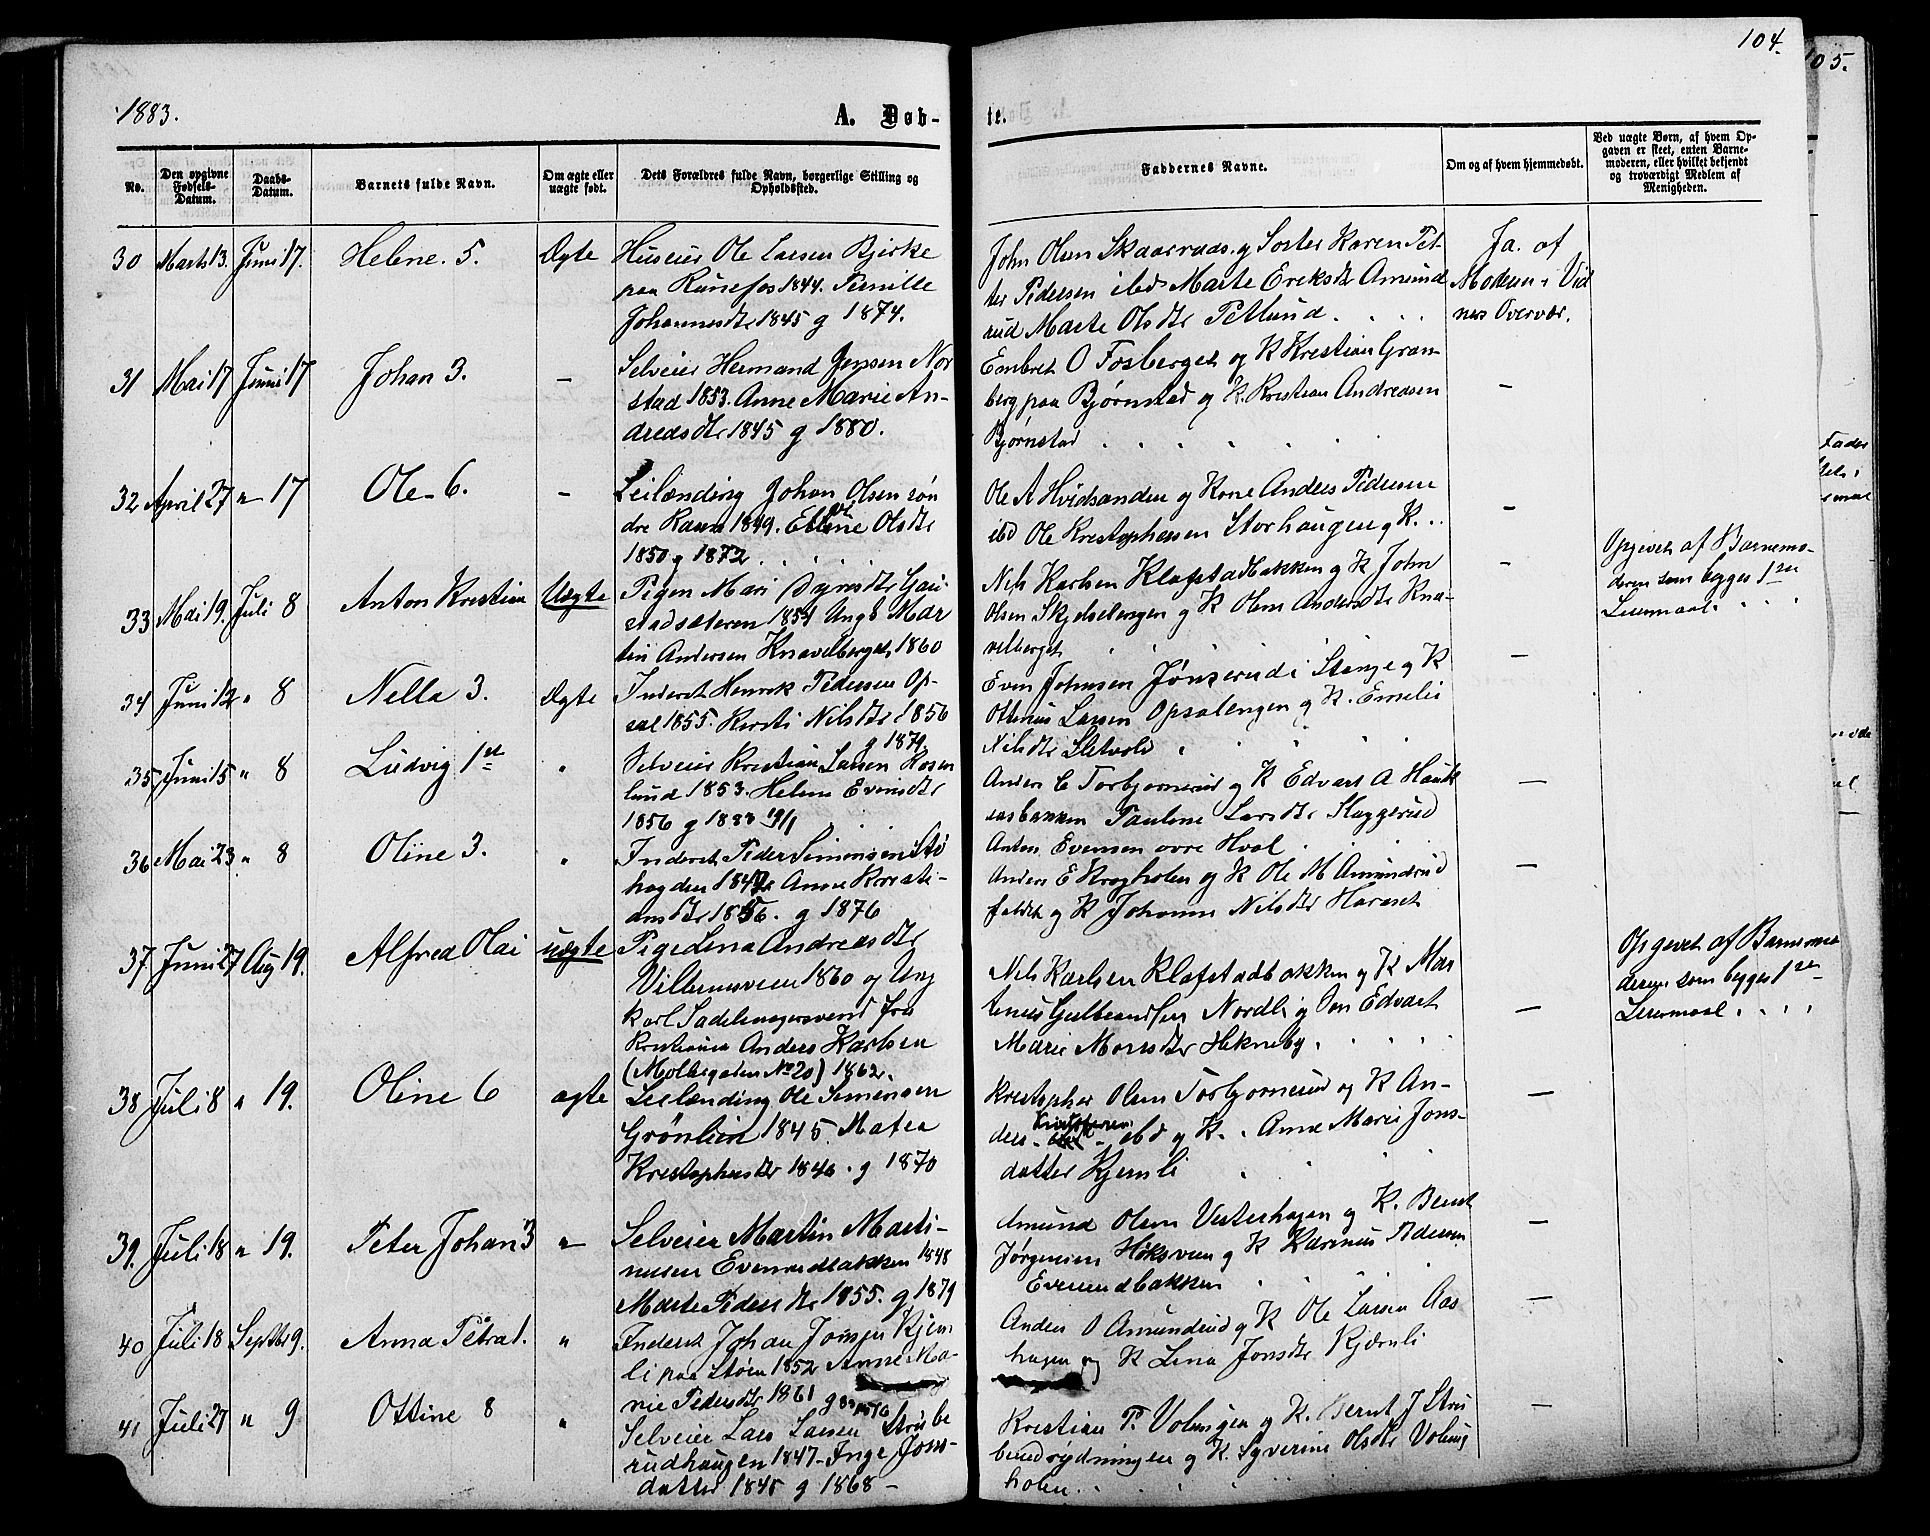 104.
105.
1883.
A. Døb-
te.
No.
Den opgivne Fødsels-Datum.
Daabs-Datum.
Barnets fulde Navn.
Om ægte eller uægte født.
Dets Forældres fulde Navn, borgerlige Stilling og Opholdssted.
Faddernes Navne.
Om og af hvem hjemmedøbt.
Ved uægte Børn, af hvem Op-
gaven er skeet, enten Barne-
moderen, eller hvilket bekjendt
og troværdigt Medlem af
Menigheden.
30 Marts 13. Juni 17. Helene. 5. Ægte
Huseier Ole Larsen Bjerke
paa Runefos 1844. Pernille
Johannesdtr 1845 g 1874.
John Olsen Skaareraas. g Soster Karen Pet-
ter Pedersen ibd Marte Ereksdtr Amund
rud Marte Olsdtr Petlund.
Ja. af
Moderen i Vid
nes Overvær.
31 Mai 17 Juni 17 Johan 3. –
Selveier Hermand Jensen Nor
stad 1853. Anne Marie An-
dreasdtr 1845 g 1880.
Embret O Fosberget og K Krestian Gran-
berg paa Bjørnstad og K. Krestian Andreasen
Bjørnstad
–
32 April 27 " 17 Ole 6. –
Leilænding Johan Olsen søn
dre Raaen 1849. Elline Olsdtr
1850 g 1872
Ole A Hvidsanden g Kone Anders Pedersen
ibd Ole Krestophersen Storhaugen g K.
–
33 Mai 19. Juli 8 Anton Krestian Uægte
Pigen Mari Gau-
stadsæteren 1854 Ungk Mar
tin Andersen Knavelberget 1860
Nels Karlsen Klafstadbakken g K John
Olsen Skjelsetengen g K Olea Andersdtr Kna-
velberget
–
Opgivet af Barnemo-
deren som begges 1ste
Leiermaal
34 Juni 12 " 8 Nella 3. Ægte
Inderst Henrik Pedersen Op-
sal 1855. Kersti Nilsdtr 1856
g 1879
Even Johnsen Jønserud i Stange g K
Ottinus Larsen Opsalengen g K. Emelie
Nilsdtr Sletvold
–
35 Juni 15 " 8 Ludvig 1st "
Selveier Krestian Larsen Rosen
lund 1853. Helene Evensdtr
1856 g 1883 19/1
Anders C Torbjornsrud g K Edvart A Hauk
aasbakken Pauline Larsdtr Skaggerud
Anton Evensen øvre Hval
–
36 Mai 23 " 8 Oline 3. "
Inderst Peder Simensen Stø
hagden 1847 Anne Kresti-
ansdtr 1856. g 1876
Anders E Krogholen og K Ole M Amundrud
feldet g K Johanne Nilsdtr Haraset
–
37 Juni 27 Aug 19. Alfred Olai uægte
Pige Lena Andreasdtr
Villumsveen 1860 og Ung
karl Sadelmagersvend fra
Kristiania Anders Karlsen
(Molbegaten No 20) 1862.
Nels Karlsen Klafstadbakken g K Mar
tinus Gulbrandsen Nordli g Søn Edvart
Marie Monsdtr Hekneby.
–
Opgivet af Barnemo
deren som begges 1ste
Leiermaal
38 Juli 8 " 19. Oline 6 ægte
Leilænding Ole Simensen
Grønlien 1845. Matea
Krestophersdtr 1846. g 1870
Krestopher Olsen Torbjornsrud og K An-
ders Kristophersen ibd g K. Anne Marie Jons-
datter Kjernli
–
39. Juli 18 " 19. Peter Johan 3 "
Selveier Martin Marti-
nusen Evenrudbakken 1848
Marte Pedersdtr 1855. g 1879
Amund Olsen Vesterhagen g K. Bernt
Jørgensen Høksveen g K Karinus Pedersen
Evenrudbakken
–
40 Juli 18 Septbr 9. Anna Petra 1. "
Inderst Johan Jonsen Kjern
li paa Støen 1852 Anne Ma-
rie Pedersdtr 1861 g
Anders O Amundrud g K Ole Larsen Aas
hagen og K Lena Jonsdtr Kjærnli
–
41 Juli 27 " 9 Ottine 8 "
Selveier Lars Larsen Strube
rudhaugen 1847 - Inge Jons-
datter 1845 g 1868 –
Krestian P. Volungen og K. Bernt J Stru
berudrydningen g K. Syverine Olsdtr Volung
holen.
–